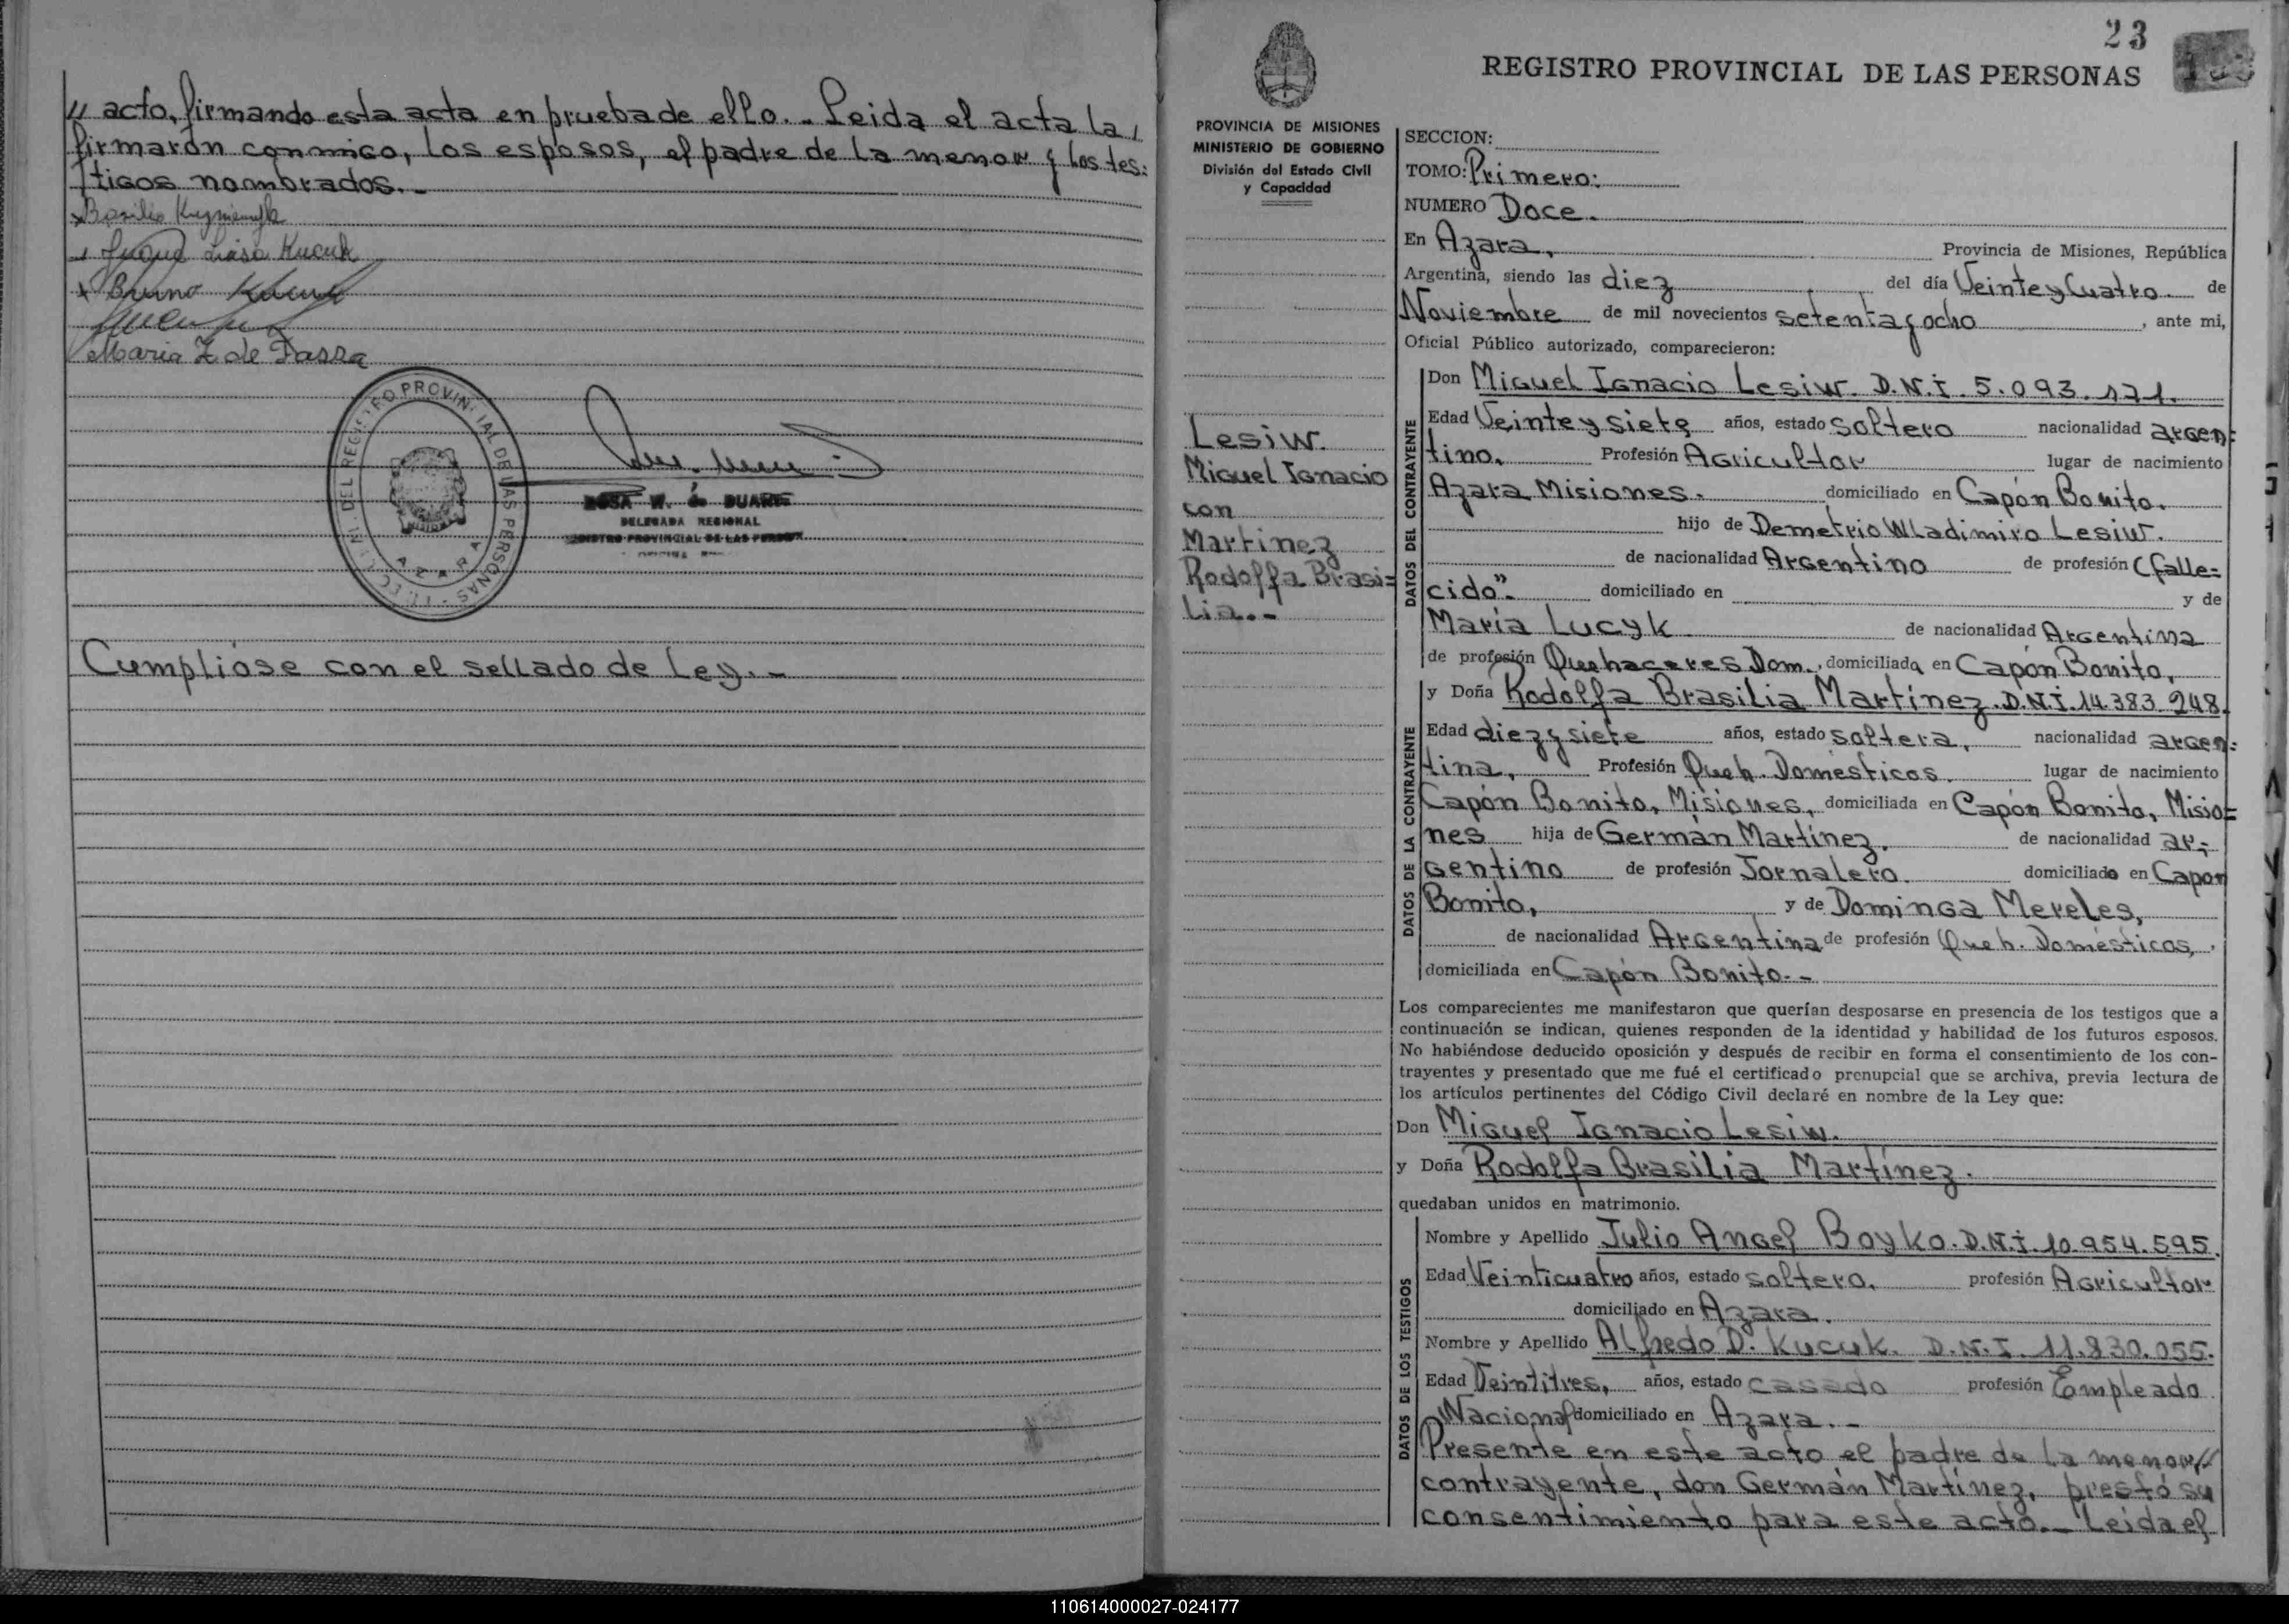 // acto, firmando esta acta en prueba de ello. - Leida el acta la,
firmarón conmigo, los esposos, el padre de la menor y los tes:
tigos nombrados. -
Maria Z de
DEL REGISTRO PROVINCIAL DE LAS PERSONAS
AZARA
ROSA W. de DUARTE
DELEGADA REGIONAL
REGISTRO PROVINCIAL DE LAS PERSONAS
Cumplióse con el sellado de Ley. -
23
REGISTRO PROVINCIAL DE LAS PERSONAS
PROVINCIA DE MISIONES
MINISTERIO DE GOBIERNO
División del Estado Civil
y Capacidad
Lesiw.
Miguel Ignacio
con
Martinez
Rodolfa Brasi=
lia. -
SECCION:
TOMO: Primero:
NUMERO Doce.
En Azara, Provincia de Misiones, República
Argentina, siendo las diez del día Veinte y Cuatro de
Noviembre de mil novecientos setenta y ocho, ante mi,
Oficial Público autorizado, comparecieron:
DATOS DEL CONTRAYENTE
Don Miguel Ignacio Lesiw. D.N.I. 5.093.171.
Edad Veinte y siete años, estado soltero nacionalidad argen=
tino. Profesión Agricultor lugar de nacimiento
Azara Misiones. domiciliado en Capón Bonito.
hijo de Demetrio Wladimiro Lesiw.
de nacionalidad Argentino de profesión (falle=
cido". domiciliado en y de
María Lucyk de nacionalidad Argentina
de profesión Quehaceres Dom., domiciliada en Capón Bonito,
DATOS DE LA CONTRAYENTE
y Doña Rodolfa Brasilia Martínez. D.N.I. 14.383.248.
Edad diez y siete años, estado soltera, nacionalidad argen=
tina, Profesión Queh. Domésticos. lugar de nacimiento
Capón Bonito, Misiones, domiciliada en Capón Bonito, Misio=
nes hija de Germán Martínez. de nacionalidad ar=
gentino de profesión Jornalero. domiciliado en Capon
Bonito, y de Dominga Mereles,
de nacionalidad Argentina de profesión Queh. Domésticos,
domiciliada en Capón Bonito. -
Los comparecientes me manifestaron que querían desposarse en presencia de los testigos que a
continuación se indican, quienes responden de la identidad y habilidad de los futuros esposos.
No habiéndose deducido oposición y después de recibir en forma el consentimiento de los con-
trayentes y presentado que me fué el certificado prenupcial que se archiva, previa lectura de
los artículos pertinentes del Código Civil declaré en nombre de la Ley que:
Don Miguel Ignacio Lesiw.
y Doña Rodolfa Brasilia Martínez.
quedaban unidos en matrimonio.
DATOS DE LOS TESTIGOS
Nombre y Apellido Julio Angel Boyko. D.N.I. 10.954.595.
Edad Veinticuatro años, estado soltero, profesión Agricultor
domiciliado en Azara.
Nombre y Apellido Alfredo D. Kucuk. D.N.I. 11.830.055.
Edad Veintitres, años, estado casado profesión Empleado
Nacional domiciliado en Azara. -
Presente en este acto el padre de la menor//
contrayente, don Germán Martínez, prestó su
consentimiento para este acto. - Leida el
110614000027-024177